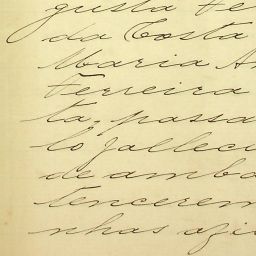 gusta Fe
da Costa
Maria A
Ferreira
ta, passa
lo falleci
de amba
tencerem
nhas azi